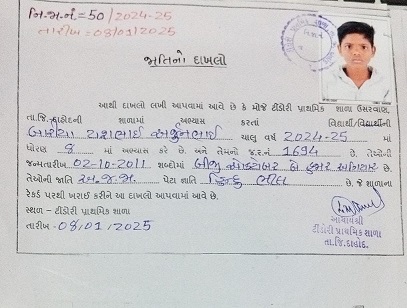 નિ.જા.નં=50/2024-25
તારીખ=08/01/2025
જાતિનો દાખલો
આથી દાખલો લખી આપવામાં આવે છે કે મોજે ટીડોરી પ્રાથમિક શાળા ઉસરવાણ,
તા.જિ.દાહોદની શાળામાં અભ્યાસ કરતાં વિદ્યાર્થી/વિદ્યાર્થીની
બારીયા યશભાઈ અર્જુનભાઈ ચાલુ વર્ષ 2024-25 માં
ધોરણ 8 માં અભ્યાસ કરે છે. અને તેમનો જ.ર.નં. 1694 છે. તેઓની
જન્મતારીખ 02-10-2011 શબ્દોમાં બીજી ઓક્ટોબર બે હજાર અગિયાર છે.
તેઓની જાતિ અ.જ.જા. પેટા જ્ઞાતિ હિન્દુ ભીલ છે, જે શાળાના
રેકર્ડ પરથી ખરાઈ કરીને આ દાખલો આપવામાં આવે છે.
સ્થળ - ટીડોરી પ્રાથમિક શાળા
તારીખ - 08/01/2025
આચાર્યશ્રી
ટીડોરી પ્રાથમિક શાળા
તા.જિ.દાહોદ.